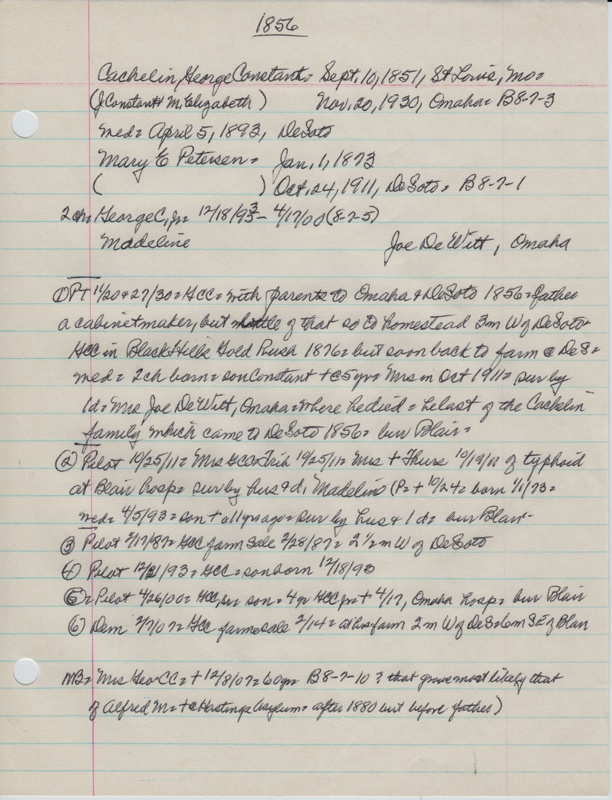 1856
Cachelin, George Constant = Sept. 10, 1851, St Louis, Mo =
(J Constant & M Elizabeth) Nov. 20, 1930, Omaha = B8-7-3
med = April 5, 1893, DeSoto
Mary E Petersen = Jan. 1, 1873
( ) Oct. 24, 1911, DeSoto = B-8-7-1
2ch = George C, Jr = 12/18/93 - 4/17/00 (8-7-5)
Madeline Joe DeWitt, Omaha
① PT 11/20 & 27/30 = GCC = with parents to Omaha & DeSoto 1856 = father
a cabinetmaker, but little of that so to homestead 3m W of DeSoto
GCC in Black Hills Gold Rush 1876 = but soon back to farm @ DeS =
med = 2ch born = son Constant + @ 5 yr = Mrs in Oct 1911 = sur by
1d = Mrs Joe DeWitt, Omaha = where he died = he last of the Cachelin
family which came to DeSoto 1856 = bur Blair =
② Pilot 10/25/11 = Mrs GCC = 10/25/11 = Mrs + Thurs 10/19/11 of typhoid
at Blair hosp = sur by hus & d, Madeline (P = + 10/24 = born 1/1/73 =
med = 4/5/93 = son + @ 11 yr ago = sur by hus & 1d = bur Blair =
③ Pilot 2/17/87 = GCC farm sale 2/28/87 = 2½ m W of DeSoto
④ Pilot 12/21/93 = GCC = son born 12/18/93
⑤ = Pilot 4/26/00 = GCC, son = 4 yr + 4/17, Omaha hosp = bur Blair
⑥ Dem 2/7/07 = GCC farm sale 2/14 = at his farm 2m W of DeS = 6m SE of Blair
MB = Mrs Geo CC = + 12/8/07 = 60 yr = B8-7-10 ? that grave most likely that
of Alfred M = + @ Hastings Asylum = after 1880 but before father)